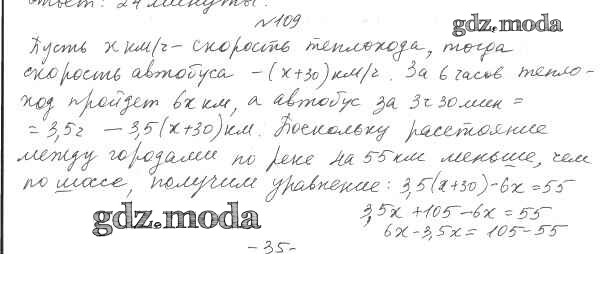 ответ: 24 минуты.
№109
gdz.moda
Пусть x км/ч - скорость теплохода, тогда
скорость автобуса - (x+30) км/г. За 6 часов тепло-
ход пройдет 6x км, а автобус за 3ч 30 мин =
= 3,5г - 3,5(x+30) км. Поскольку расстояние
между городами по реке на 55 км меньше, чем
по шоссе, получим уравнение: 3,5(x+30)-6x=55
gdz.moda
3,5x+105-6x=55
6x-3,5x=105-55
-35-